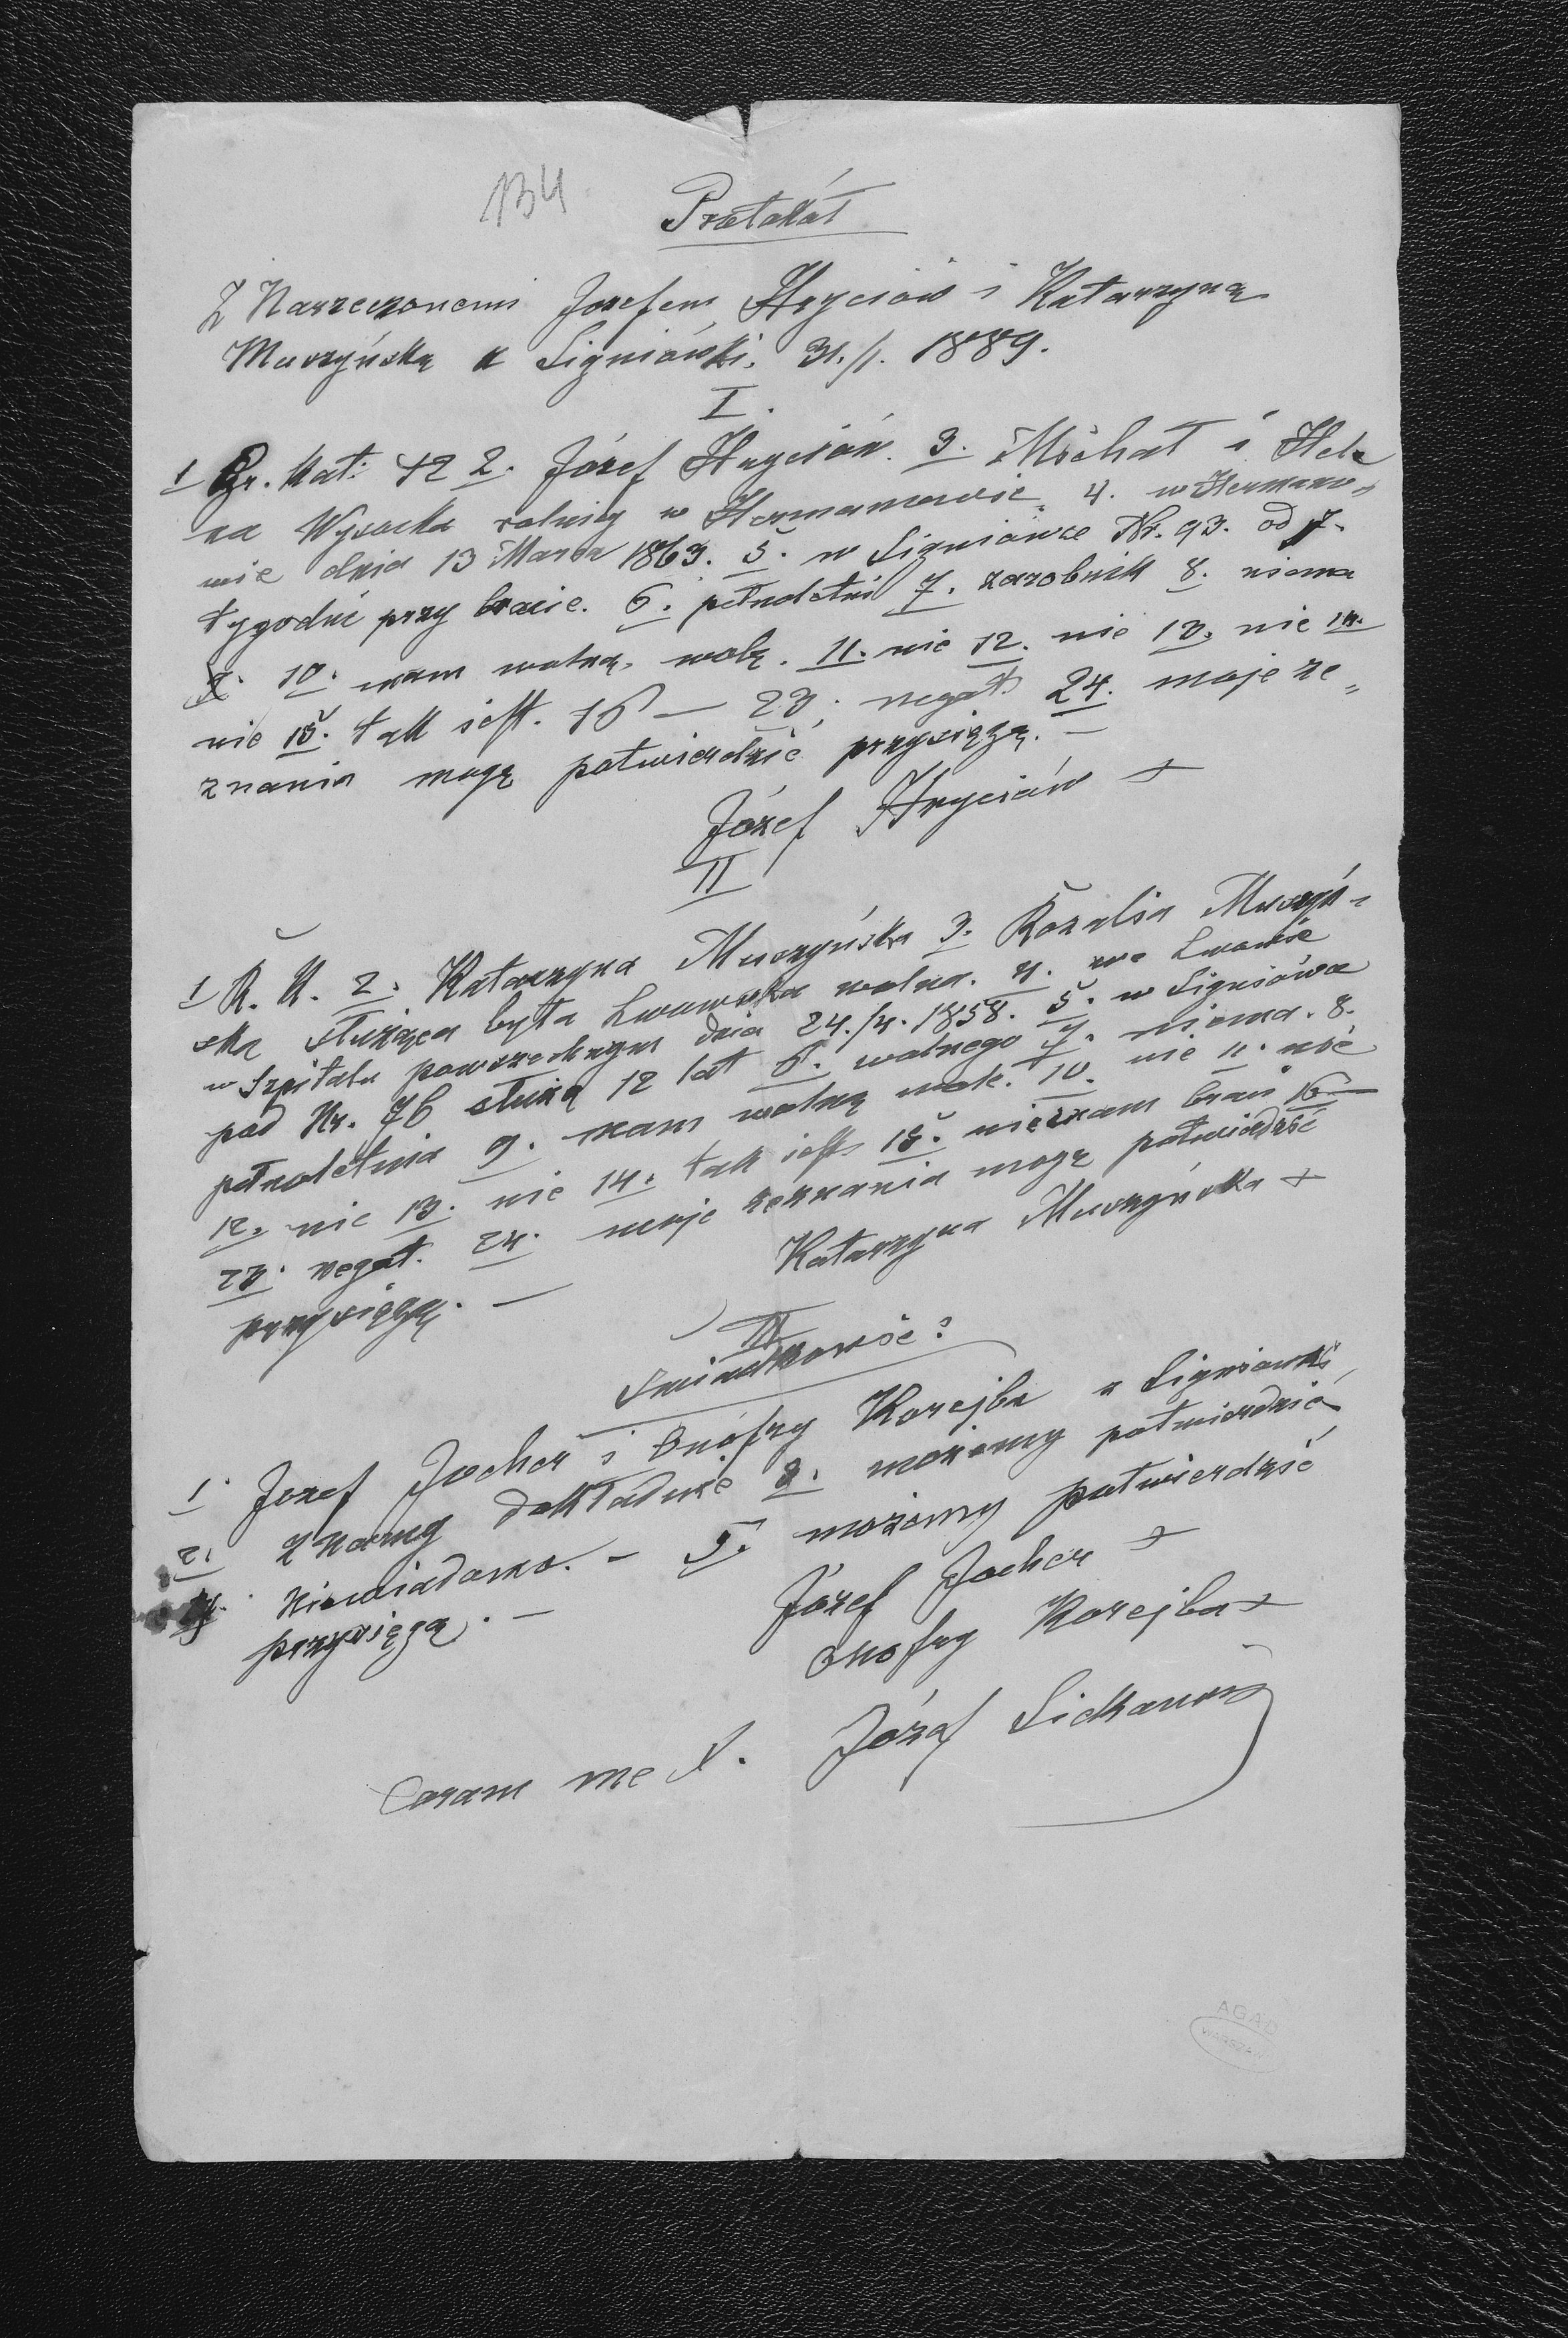 134
Protokół
Z Narzeczonemi Jozefem Hryciów i Katarzyną
Muszyńską z Signiówki. 31./1. 1889.
I.
1 Gr. Kat: 2. Józef Hryciów. 3. Michał i Hele
na Wysocka rolnicy w Hermanowie. 4. w Hermano-
wie dnia 13 Marca 1863. 5. w Signiówce Nr. 93. od 7.
tygodni przy bracie. 6. pełnoletni 7. zarobnik 8. niema
9. 10. mam wolną wolą. 11. nie 12. nie 13. nie 14.
nie 15. tak jest. 16 — 23. negat. 24. moje ze„
znania mogę potwierdzić przysięgą. —
Józef Hryciów +
II
1 R. K. 2. Katarzyna Muszyńska 3. Rozalia Muszyń-
ska służąca była Lwowska wolna. 4. we Lwowie
w Szpitalu powszechnym dnia 24./4. 1858. 5. w Signiówce
pod Nr. 76 służą 12 lat 6. wolnego 7. niema. 8.
pełnoletnia 9. mam wolną wole. 10. nie 11. nie
12. nie 13. nie 14. tak jest 15. nieznam 16 —
23. negat. 24. moje zeznania mogę potwierdzić
przysięgą. — Katarzyna Muszyńska +
III
Swiadkowie:
1. Jozef Jocher i Onofry Korejba z Signiowki
2. Znamy dokładnie 3. możemy potwierdzić
4. Niewiadomo. — 5. możemy potwierdzić
przysięgą. — Józef Jocher +
Onofry Korejba +
Coram me X. Józef
AGAD
WARSZAWA